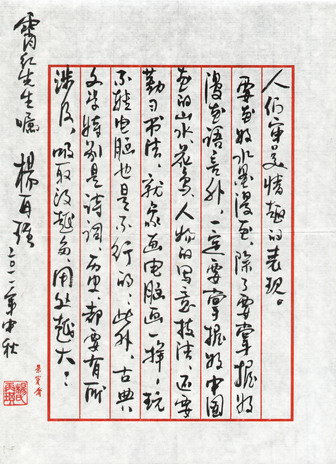 人们审美情趣的表现。
要画好水墨漫画，除了要掌握好
漫画语言外，一定要掌握好中国
画的山水花鸟人物的写意技法，还要
勤习书法，就象画电脑画一样，玩
不转电脑也是不行的；此外，古典
文学特别是诗词、历史、都要有所
涉及，吸取得越多，用处越大！
先生嘱
二〇一一年中秋